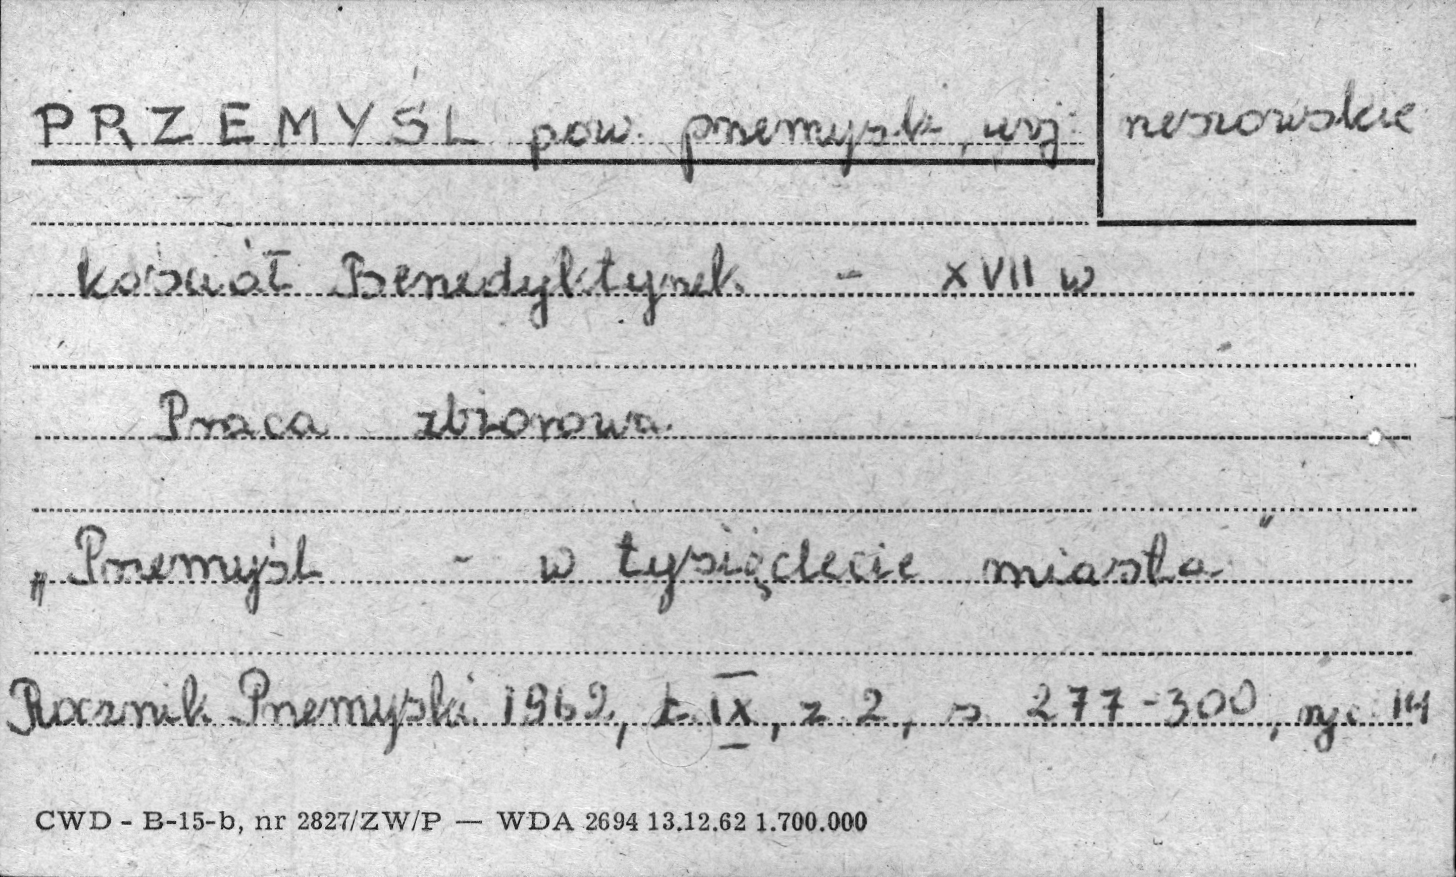 PRZEMYŚL pow. przemysk, woj. rzeszowskie
kościół Benedyktynek - XVII w
Praca zbiorowa.
„Przemyśl - w tysiąclecie miasta"
Rocznik Przemyski 1962, t. IX, z. 2, s 277-300, ryc. 14
CWD - B-15-b, nr 2827/ZW/P — WDA 2694 13.12.62 1.700.000